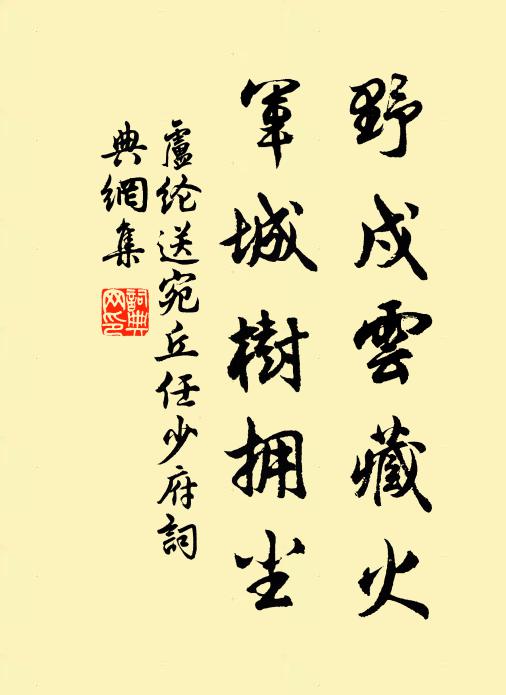 野戍雲藏火
軍城樹拥尘
盧纶送宛丘任少府詞
典網集
詞典网印